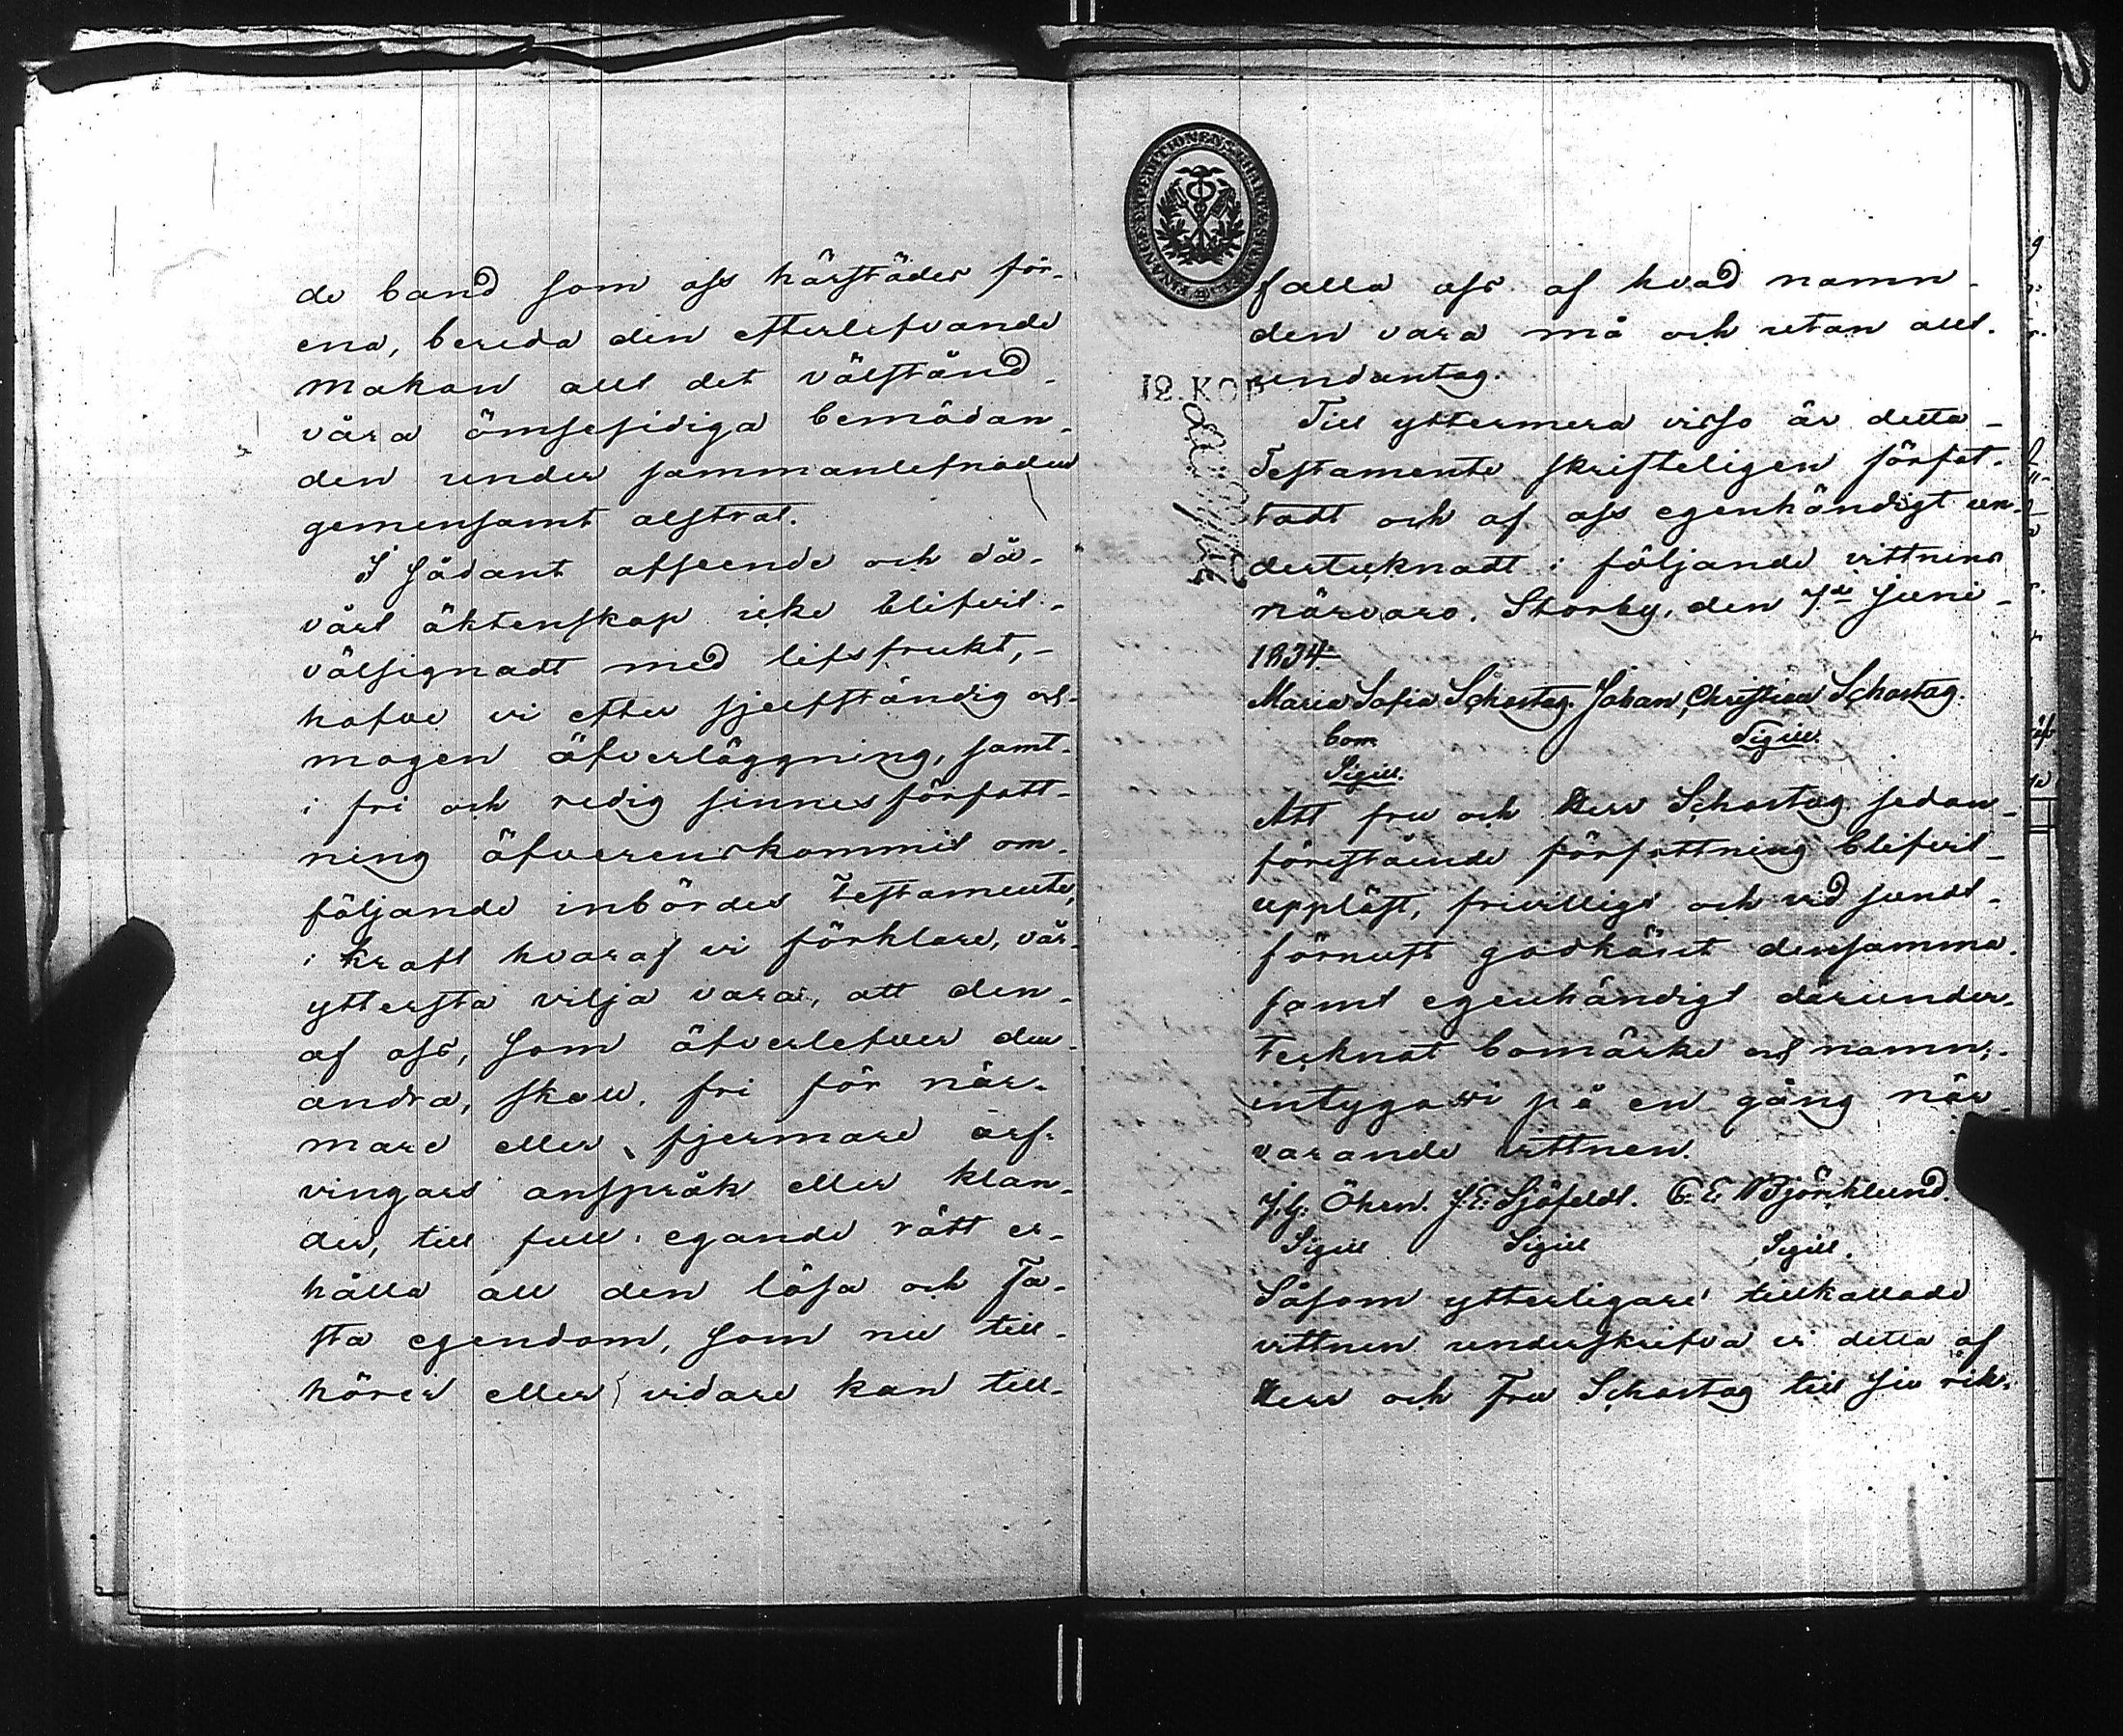 de band som oss härstädes för-
ena, bereda den efterlefvande
makan allt det välstånd
våra ömsesidiga bemödan-
den under sammanlefnaden
gemensamt alstrat.
I sådant afseende och då
vårt äktenskap icke blifvit
välsignadt med lifsfrukt,
hafve vi efter sjelfständig och
mogen öfverläggning, samt
i fri och redig sinnesförfatt-
ning öfverenskommit om
följande inbördes Testamente,
i kraft hvaraf vi förklare, vår
yttersta vilja vara, att den
af oss, som öfverlefver den
andra, skall, fri för när-
mare eller fjermare arf-
vingars anspråk eller klan-
der, till full egande rätt er-
hålla all den lösa och fa-
sta egendom, som nu till-
hörer eller vidare kan till-
FINANCE EXPEDITIONENS
12. KOP
falla oss af hvad namn
den vara må och utan allt
undantag.
Till yttermera visso är detta
Testamente skrifteligen förfat-
tadt och af oss egenhändigt un-
dertecknadt i följande vittnens
närvaro. Storby, den 7de Juni
1834
Maria Sofia Schostag. Johan Christian Schostag.
bom Sigill.
Sigill.
Att fru och Herr Schostag sedan
förestående författning blifvit
uppläst, frivilligt och vid sundt
förnuft godkänt densamma
samt egenhändigt derunder-
tecknat bomärke och namn,
intyga vi på en gång när-
varande vittnen.
J. G. Öhrn. J. E. Sjöfeldt. C. E. Björklund.
Sigill Sigill Sigill.
Såsom ytterligare tillkallade
vittnen underskrifva vi detta af
Herr och Fru Schostag till sin rik-